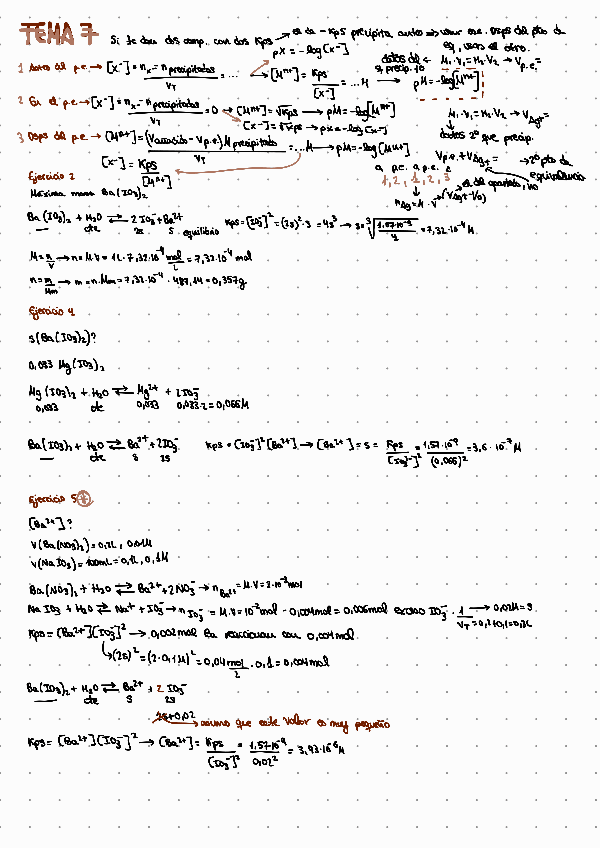 TEMA 7 Si te dan dos comp. con dos Kps → el de - Kps precipita antes → usar ese. Dsps del pto de eq, usas el otro.
pX = -log[X-]
datos del q precip. 1º M1·V1 = M2·V2 → Vp.e =
1 Antes del p.e → [X-] = nx- - n precipitados / VT = ... → [Mn+] = Kps / [X-] = ... M → pM = -log[Mn+]
2 En el p.e → [X-] = nx- - n precipitados / VT = 0 → [Mn+] = √Kps → pM = -log[Mn+]
[X-] = √Kps → pX = -log[X-]
M1·V1 = M2·V2 → VAg+ =
datos 2º que precip.
3 Dsps del p.e → [Mn+] = (Vañadido - Vp.e) M precipitado / VT = ... M → pM = -log[Mn+]
Vp.e + VAg+ = → 2º pto de equivalencia
[X-] = Kps / [Mn+]
a p.e. a p.e.
1, 2, 1, 2, 3
nAg = M·V
Ejercicio 2
Máxima masa Ba(IO3)2
Ba(IO3)2 + H2O ⇌ 2IO3- + Ba2+ Kps = [IO3-]2 = (2s)2·s = 4s3 → s = ∛(1,57·10-9 / 4) = 7,32·10-4 M
— cte 2s s equilibrio
M = n/V → n = M·V = 1L·7,32·10-4 mol/L = 7,32·10-4 mol
n = m/Mm → m = n·Mm = 7,32·10-4 · 487,14 = 0,357g
Ejercicio 4
s(Ba(IO3)2)?
0,033 Mg(IO3)2
Mg(IO3)2 + H2O ⇌ Mg2+ + 2IO3-
0,033 cte 0,033 0,033·2 = 0,066M
Ba(IO3)2 + H2O ⇌ Ba2+ + 2IO3- Kps = [IO3-]2[Ba2+] → [Ba2+] = s = Kps / [IO3-]2 = 1,57·10-9 / (0,066)2 = 3,6·10-7 M
— cte s 2s
Ejercicio 5
[Ba2+]?
V(Ba(NO3)2) = 0,2L, 0,01M
V(NaIO3) = 100mL = 0,1L, 0,1M
Ba(NO3)2 + H2O ⇌ Ba2+ + 2NO3- → nBa2+ = M·V = 2·10-3 mol
NaIO3 + H2O ⇌ Na+ + IO3- → nIO3- = M·V = 10-2 mol - 0,004mol = 0,006mol exceso IO3- · 1 / VT = 0,2+0,1=0,3L → 0,02M = s
Kps = [Ba2+][IO3-]2 → 0,002mol Ba reaccionan con 0,004mol
↳ (2s)2 = (2·0,1M)2 = 0,04 mol/L · 0,1 = 0,004mol
Ba(IO3)2 + H2O ⇌ Ba2+ + 2 IO3-
— cte s 2s
2s+0,02 → asumo que este valor es muy pequeño
Kps = [Ba2+][IO3-]2 → [Ba2+] = Kps / [IO3-]2 = 1,57·10-9 / 0,022 = 3,93·10-6 M